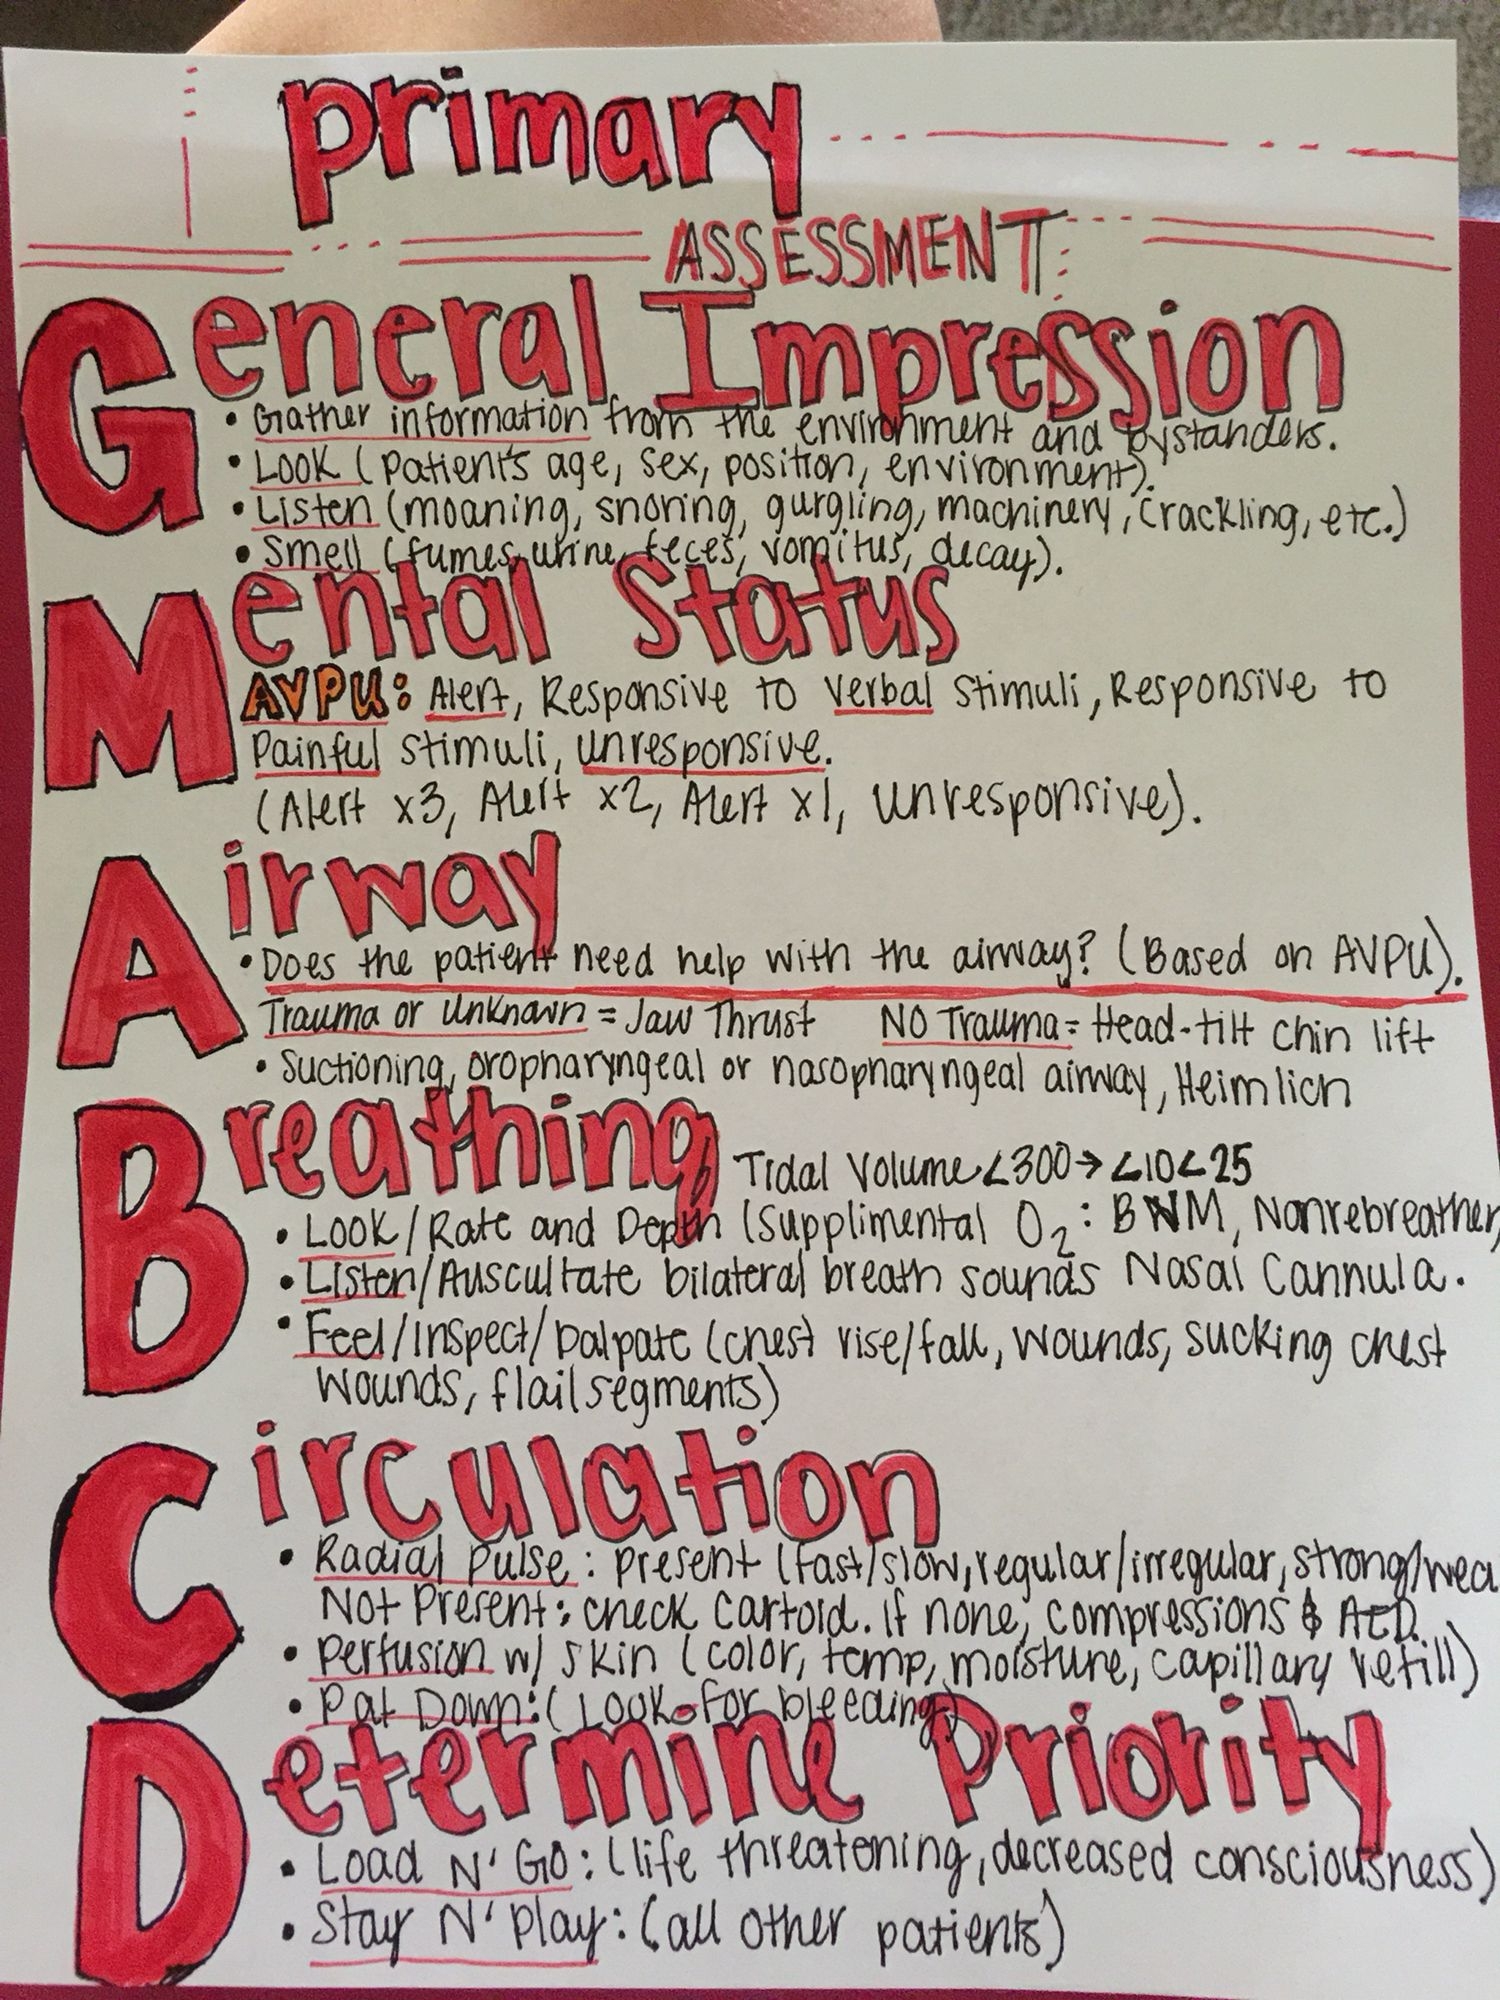 primary
ASSESSMENT
General Impression
• Gather information from the environment and bystanders.
• Look (patient's age, sex, position, environment).
• Listen (moaning, snoring, gurgling, machinery, crackling, etc.)
• Smell (fumes, urine, feces, vomitus, decay).
Mental Status
AVPU: Alert, Responsive to Verbal stimuli, Responsive to
Painful stimuli, unresponsive.
(Alert x3, Alert x2, Alert x1, unresponsive).
Airway
• Does the patient need help with the airway? (Based on AVPU).
Trauma or Unknown = Jaw Thrust NO Trauma = Head-tilt chin lift
• Suctioning, oropharyngeal or nasopharyngeal airway, Heimlich
Breathing Tidal Volume <300→ <10<25
• Look/Rate and Depth (Supplimental O2: BVM, Nonrebreather,
• Listen/Auscultate bilateral breath sounds Nasal Cannula.
• Feel/Inspect/Palpate (chest rise/fall, wounds, sucking chest
wounds, flail segments)
Circulation
• Radial Pulse: Present (fast/slow, regular/irregular, strong/wea
Not Present: check cartoid. If none, compressions & AED.
• Perfusion w/ skin (color, temp, moisture, capillary refill)
• Pat Down: (Look for bleeding)
Determine Priority
• Load N' Go: (life threatening, decreased consciousness)
• Stay N' Play: (all other patients)